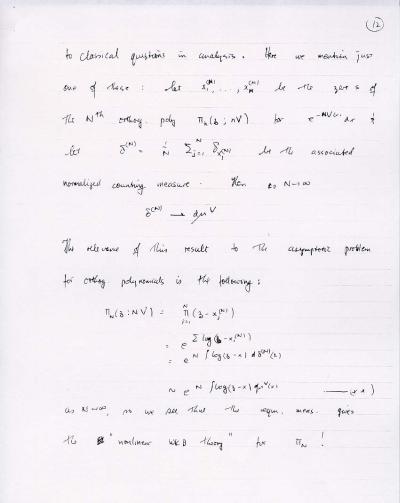 (12)
to classical questions in analysis. Here we mention just
one of these : let x_1^{(N)}, ..., x_N^{(N)} be the zeros of
the N^{th} orthog. poly π_N(z; NV) for e^{-NV(x)} dx &
let δ^{(N)} = 1/N Σ_{j=1}^N δ_{x_j^{(N)}} be the associated
normalized counting measure. Then as N→∞
δ^{(N)} → dμ^V
The relevance of this result to the asymptotic problem
for orthog. polynomials is the following :
π_N(z; NV) = Π_{j=1}^N (z - x_j^{(N)})
= e^{Σ log(z - x_j^{(N)})}
= e^{N ∫ log(z-x) dδ^{(N)}(x)}
~ e^{N ∫ log(z-x) dμ^V(x)} —— (**)
as N→∞, so we see that the equm. meas. gives
the "nonlinear WKB theory" for π_N !